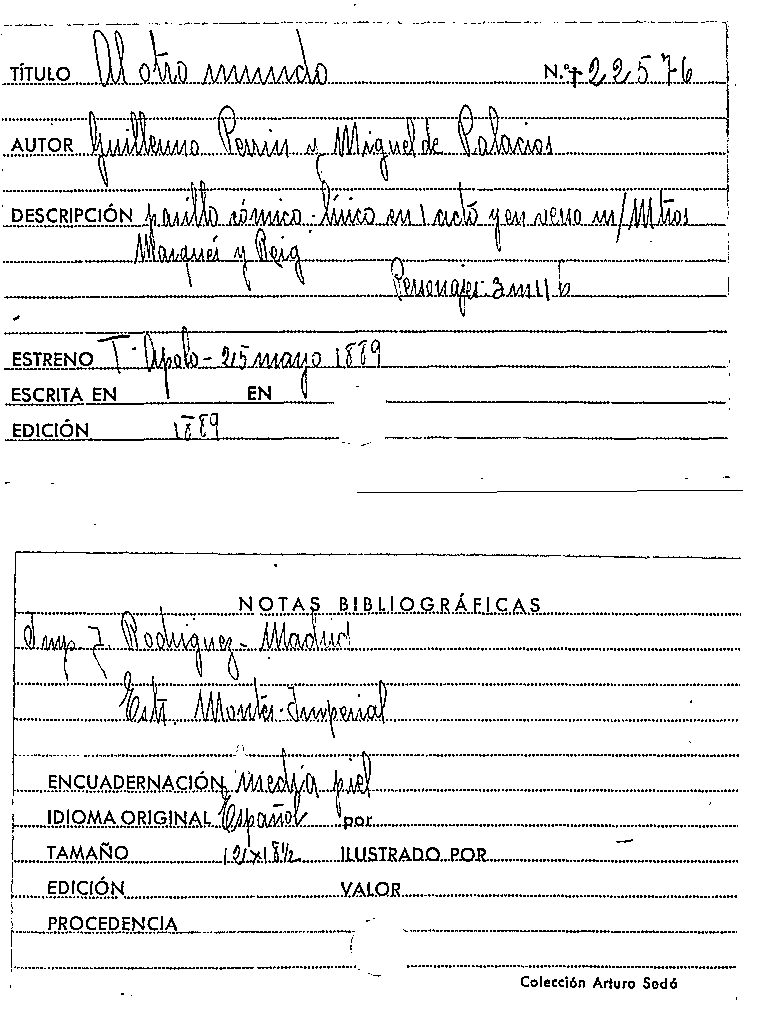 TÍTULO Al otro mundo N.º 22576
AUTOR Guillermo Perrin y Miguel de Palacios
DESCRIPCIÓN pasillo cómico-lírico en 1 acto y en verso m/Mtros
Marqués y Reig
Personajes: 3 m 11 h
ESTRENO T. Apolo - 25 mayo 1889
ESCRITA EN EN
EDICIÓN 1889
NOTAS BIBLIOGRÁFICAS
Imp. J. Rodriguez - Madrid
Estr. Montes-Imperial
ENCUADERNACIÓN media piel
IDIOMA ORIGINAL Español por
TAMAÑO 12x18½ ILUSTRADO POR —
EDICIÓN VALOR
PROCEDENCIA
Colección Arturo Sedó